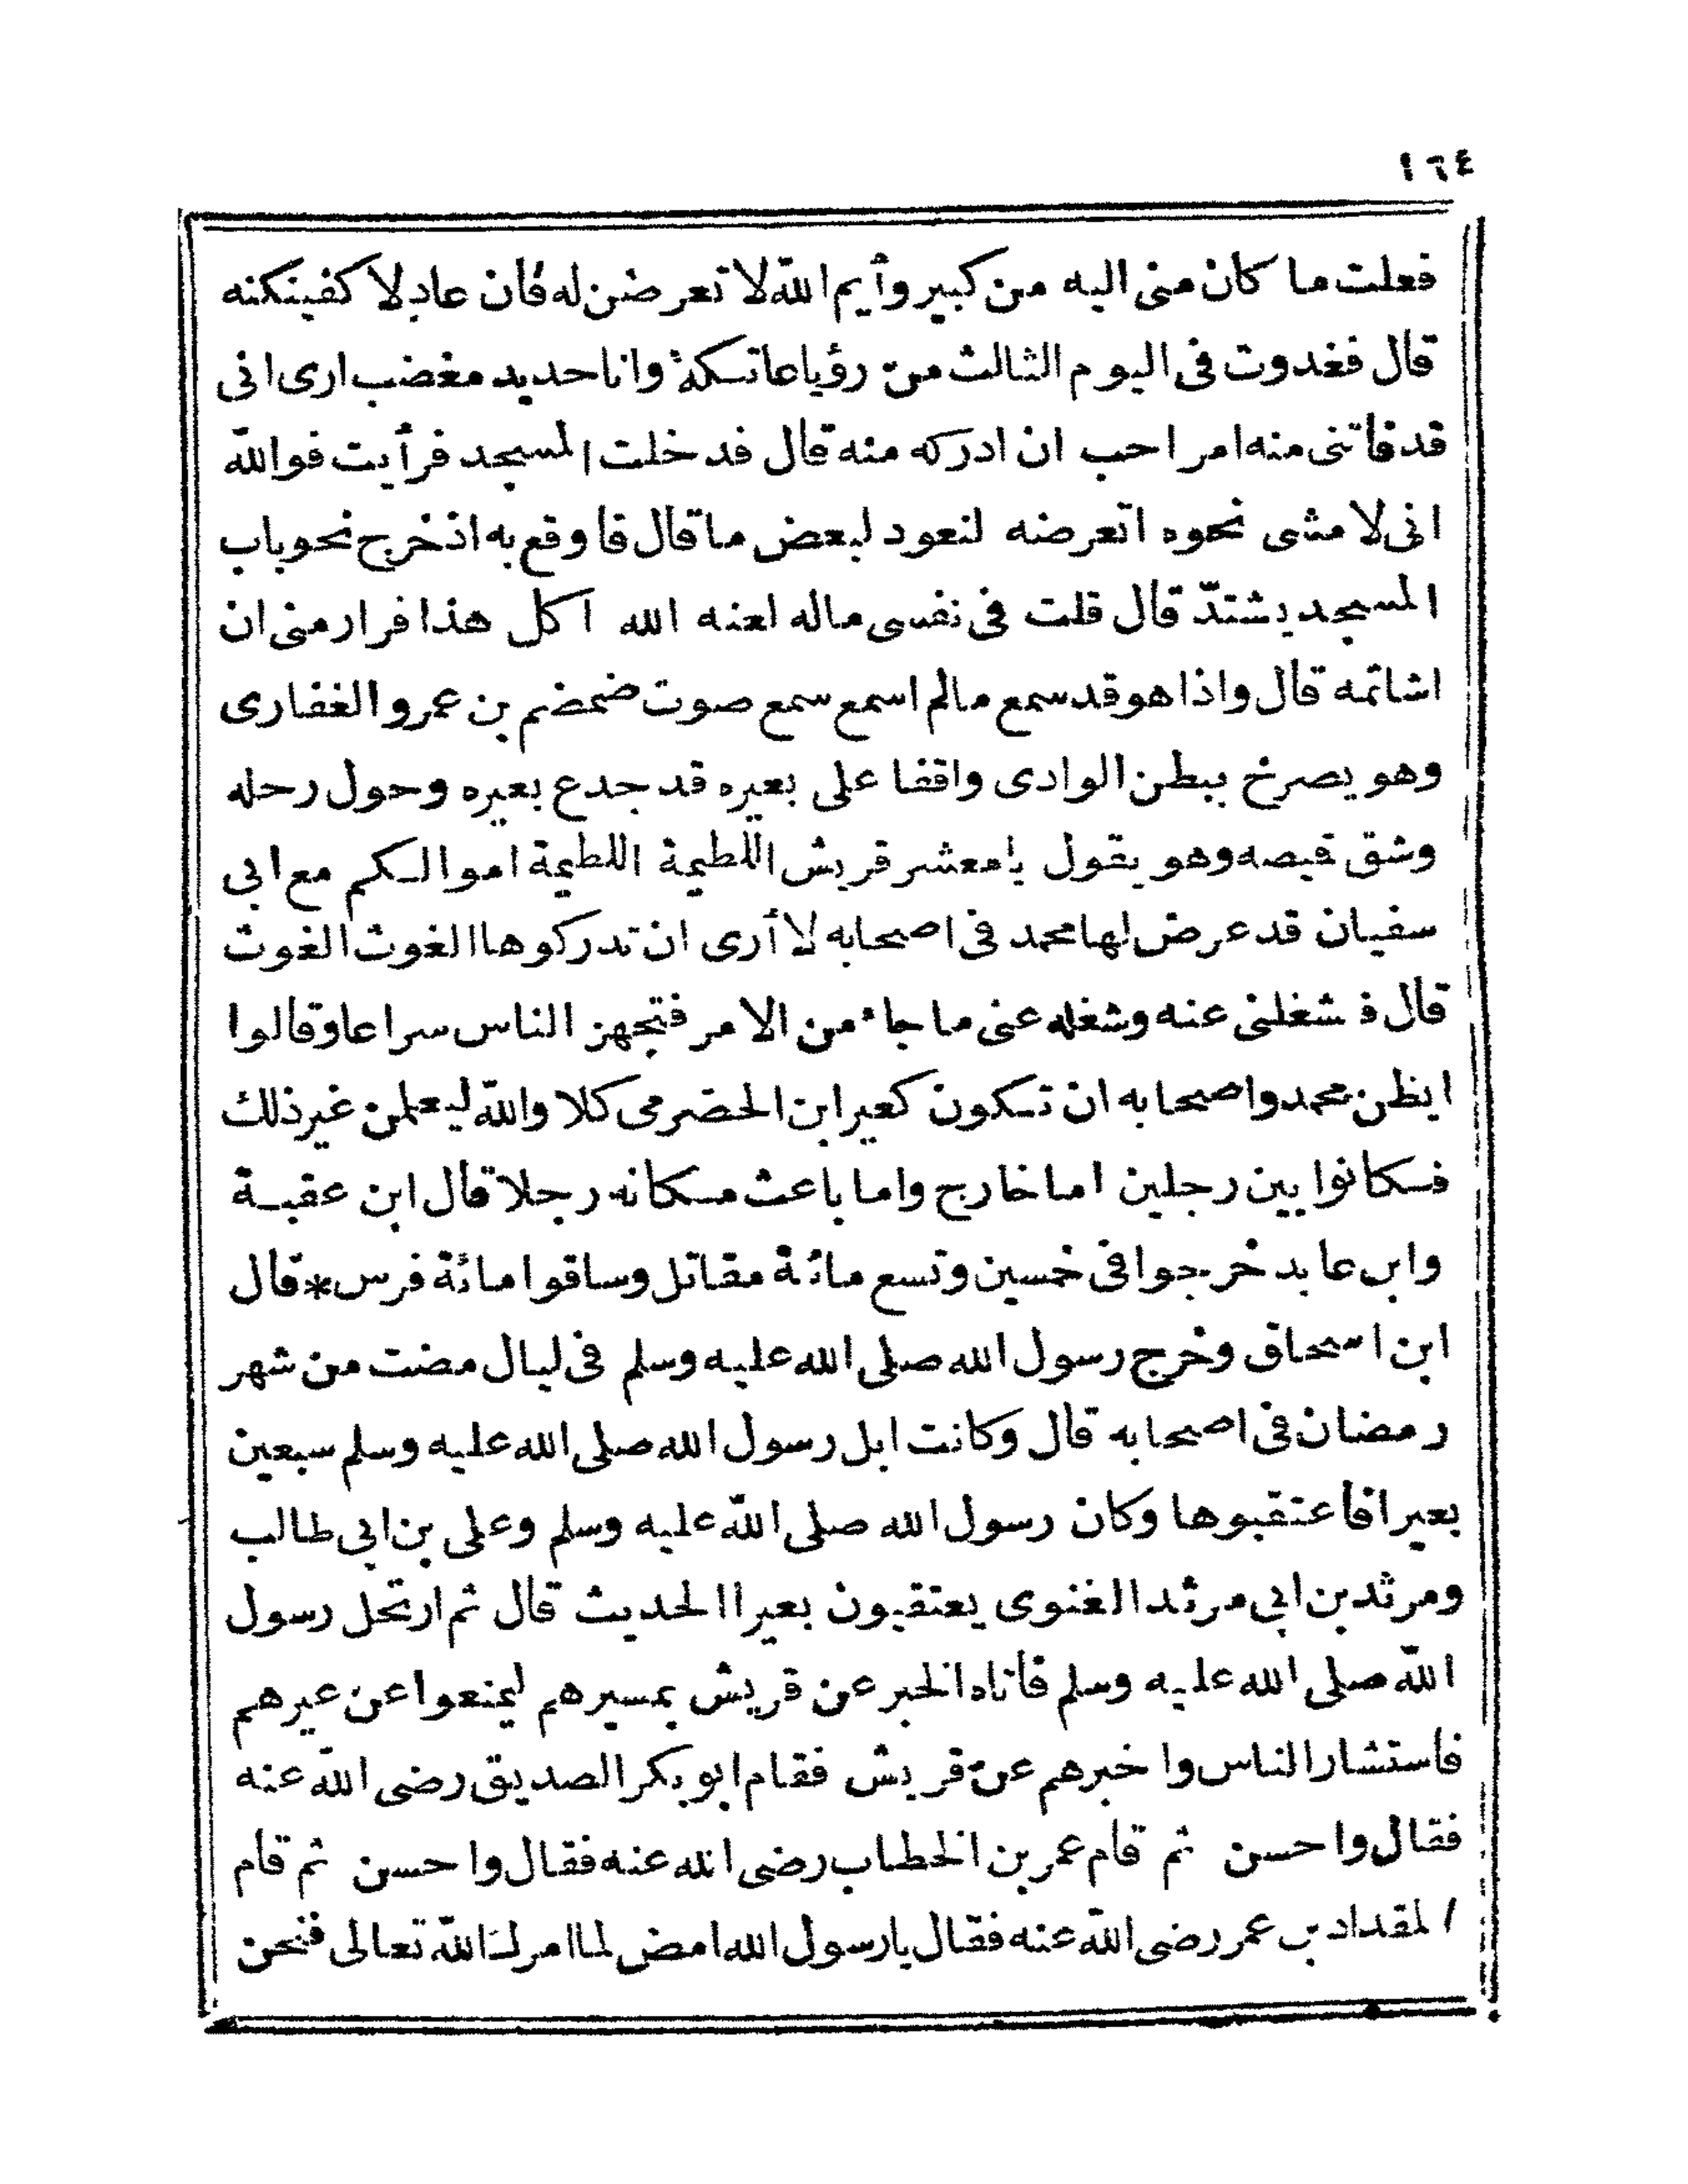 ١٦٤
فعلت ما كان منى اليه من كبير وأيم الله لا تعرضن له فان عاد لا كفينكنه
قال فغدوت فى اليوم الثالث من رؤياعاتكة وانا حديد مغضب ارى انى
قد فاتنى منه امر احب ان ادركه منه قال فدخلت المسجد فرأيت فوالله
انى لا مشى نحوه اتعرضه لنعود لبعض ما قال فاوقع به اذ خرج نحو باب
المسجد يشتدّ قال قلت فى نفسى ماله لعنه الله اكل هذا فرار منى ان
اشاتمه قال واذا هو قد سمع مالم اسمع سمع صوت ضمضم بن عمرو الغفارى
وهو يصرخ ببطن الوادى واقفا على بعيره قد جدع بعيره وحول رحله
وشق قيصه وهو يقول يا معشر قريش اللطيمة اللطيمة اموالكم مع ابى
سفيان قد عرض لها محمد فى اصحابه لا أرى ان تدركوها الغوث الغوث
قال فشغلنى عنه وشغله عنى ما جاء من الامر فتجهز الناس سراعا وقالوا
ايظن محمد واصحابه ان تكون كعير ابن الحضرمى كلا والله ليعلمن غير ذلك
فكانوا بين رجلين اما خارج واما باعث مكانه رجلا قال ابن عقبة
وابن عايد خرجوا فى خمسين وتسع مائة مقاتل وساقوا مائة فرس * قال
ابن اسحاق وخرج رسول الله صلى الله عليه وسلم فى ليال مضت من شهر
رمضان فى اصحابه قال وكانت ابل رسول الله صلى الله عليه وسلم سبعين
بعيرا فأعتقبوها وكان رسول الله صلى الله عليه وسلم وعلى بن ابى طالب
ومرثد بن ابى مرثد الغنوى يعتقبون بعيرا الحديث قال ثم ارتحل رسول
الله صلى الله عليه وسلم فأتاه الخبر عن قريش بمسيرهم ليمنعوا عن عيرهم
فاستشار الناس واخبرهم عن قريش فقام ابو بكر الصديق رضى الله عنه
فقال واحسن ثم قام عمر بن الخطاب رضى الله عنه فقال واحسن ثم قام
المقداد بن عمر رضى الله عنه فقال يا رسول الله امض لما امرك الله تعالى فنحن